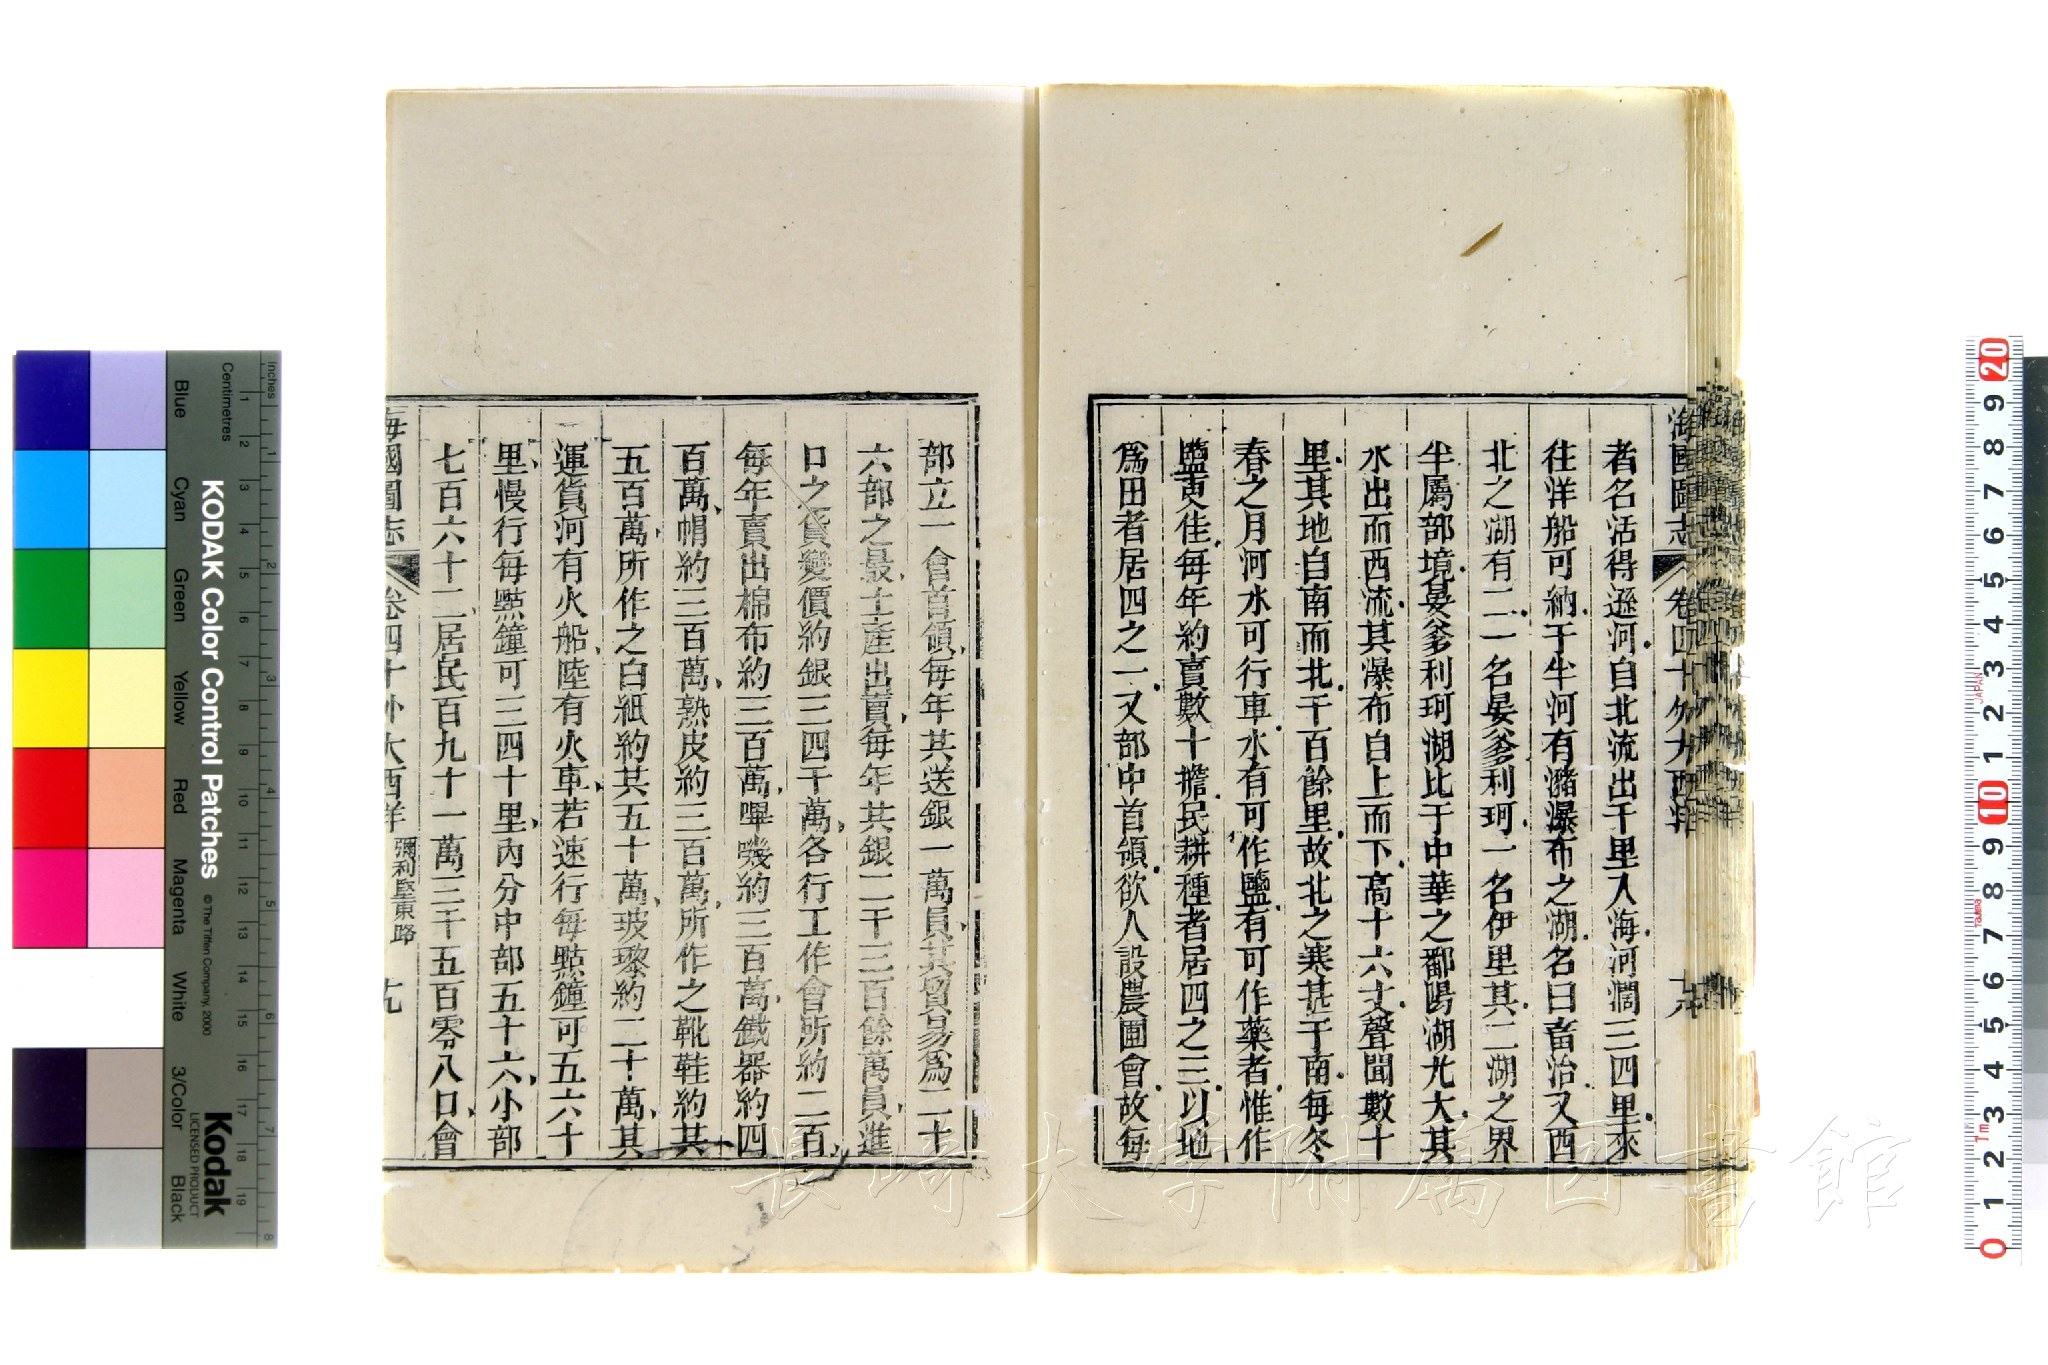 海國圖志 卷四十外大西洋 十八
者名活得遜河自北流出千里入海河濶三四里來
往洋船可納于半河有瀦瀑布之湖名曰畜治又西
北之湖有二一名晏爹利珂一名伊里其二湖之界
半屬部境晏爹利珂湖比于中華之鄱陽湖尤大其
水出而西流其瀑布自上而下高十六丈聲聞數十
里其地自南而北千百餘里故北之寒甚于南每冬
春之月河水可行車水有可作鹽有可作藥者惟作
鹽更佳每年約賣數十擔民耕種者居四之三以地
爲田者居四之一又部中首領欲人設農圃會故每
部立一會首領每年其送銀一萬員其貿易爲二十
六部之最土產出賣每年共銀二千三百餘萬員進
口之貨變價約銀三四千萬各行工作會所約二百
每年賣出棉布約三百萬嗶嘰約三百萬鐵器約四
百萬帽約三百萬熟皮約三百萬所作之靴鞋約共
五百萬所作之白紙約共五十萬玻瓈約二十萬其
運貨河有火船陸有火車若速行每點鐘可五六十
里慢行每點鐘可三四十里內分中部五十六小部
七百六十二居民百九十一萬三千五百零八口會
海國圖志 卷四十外大西洋 彌利堅東路 十九
KODAK Color Control Patches
© The Tiffen Company, 2000
Kodak
LICENSED PRODUCT
Blue Cyan Green Yellow Red Magenta White 3/Color Black
inches
Centimetres
1 2 3 4 5 6 7 8 9 10 11 12 13 14 15 16 17 18 19
1 2 3 4 5 6 7 8
20 9 8 7 6 5 4 3 2 1 10 9 8 7 6 5 4 3 2 1 0
JAPAN
Tajima
長崎大学附属図書館